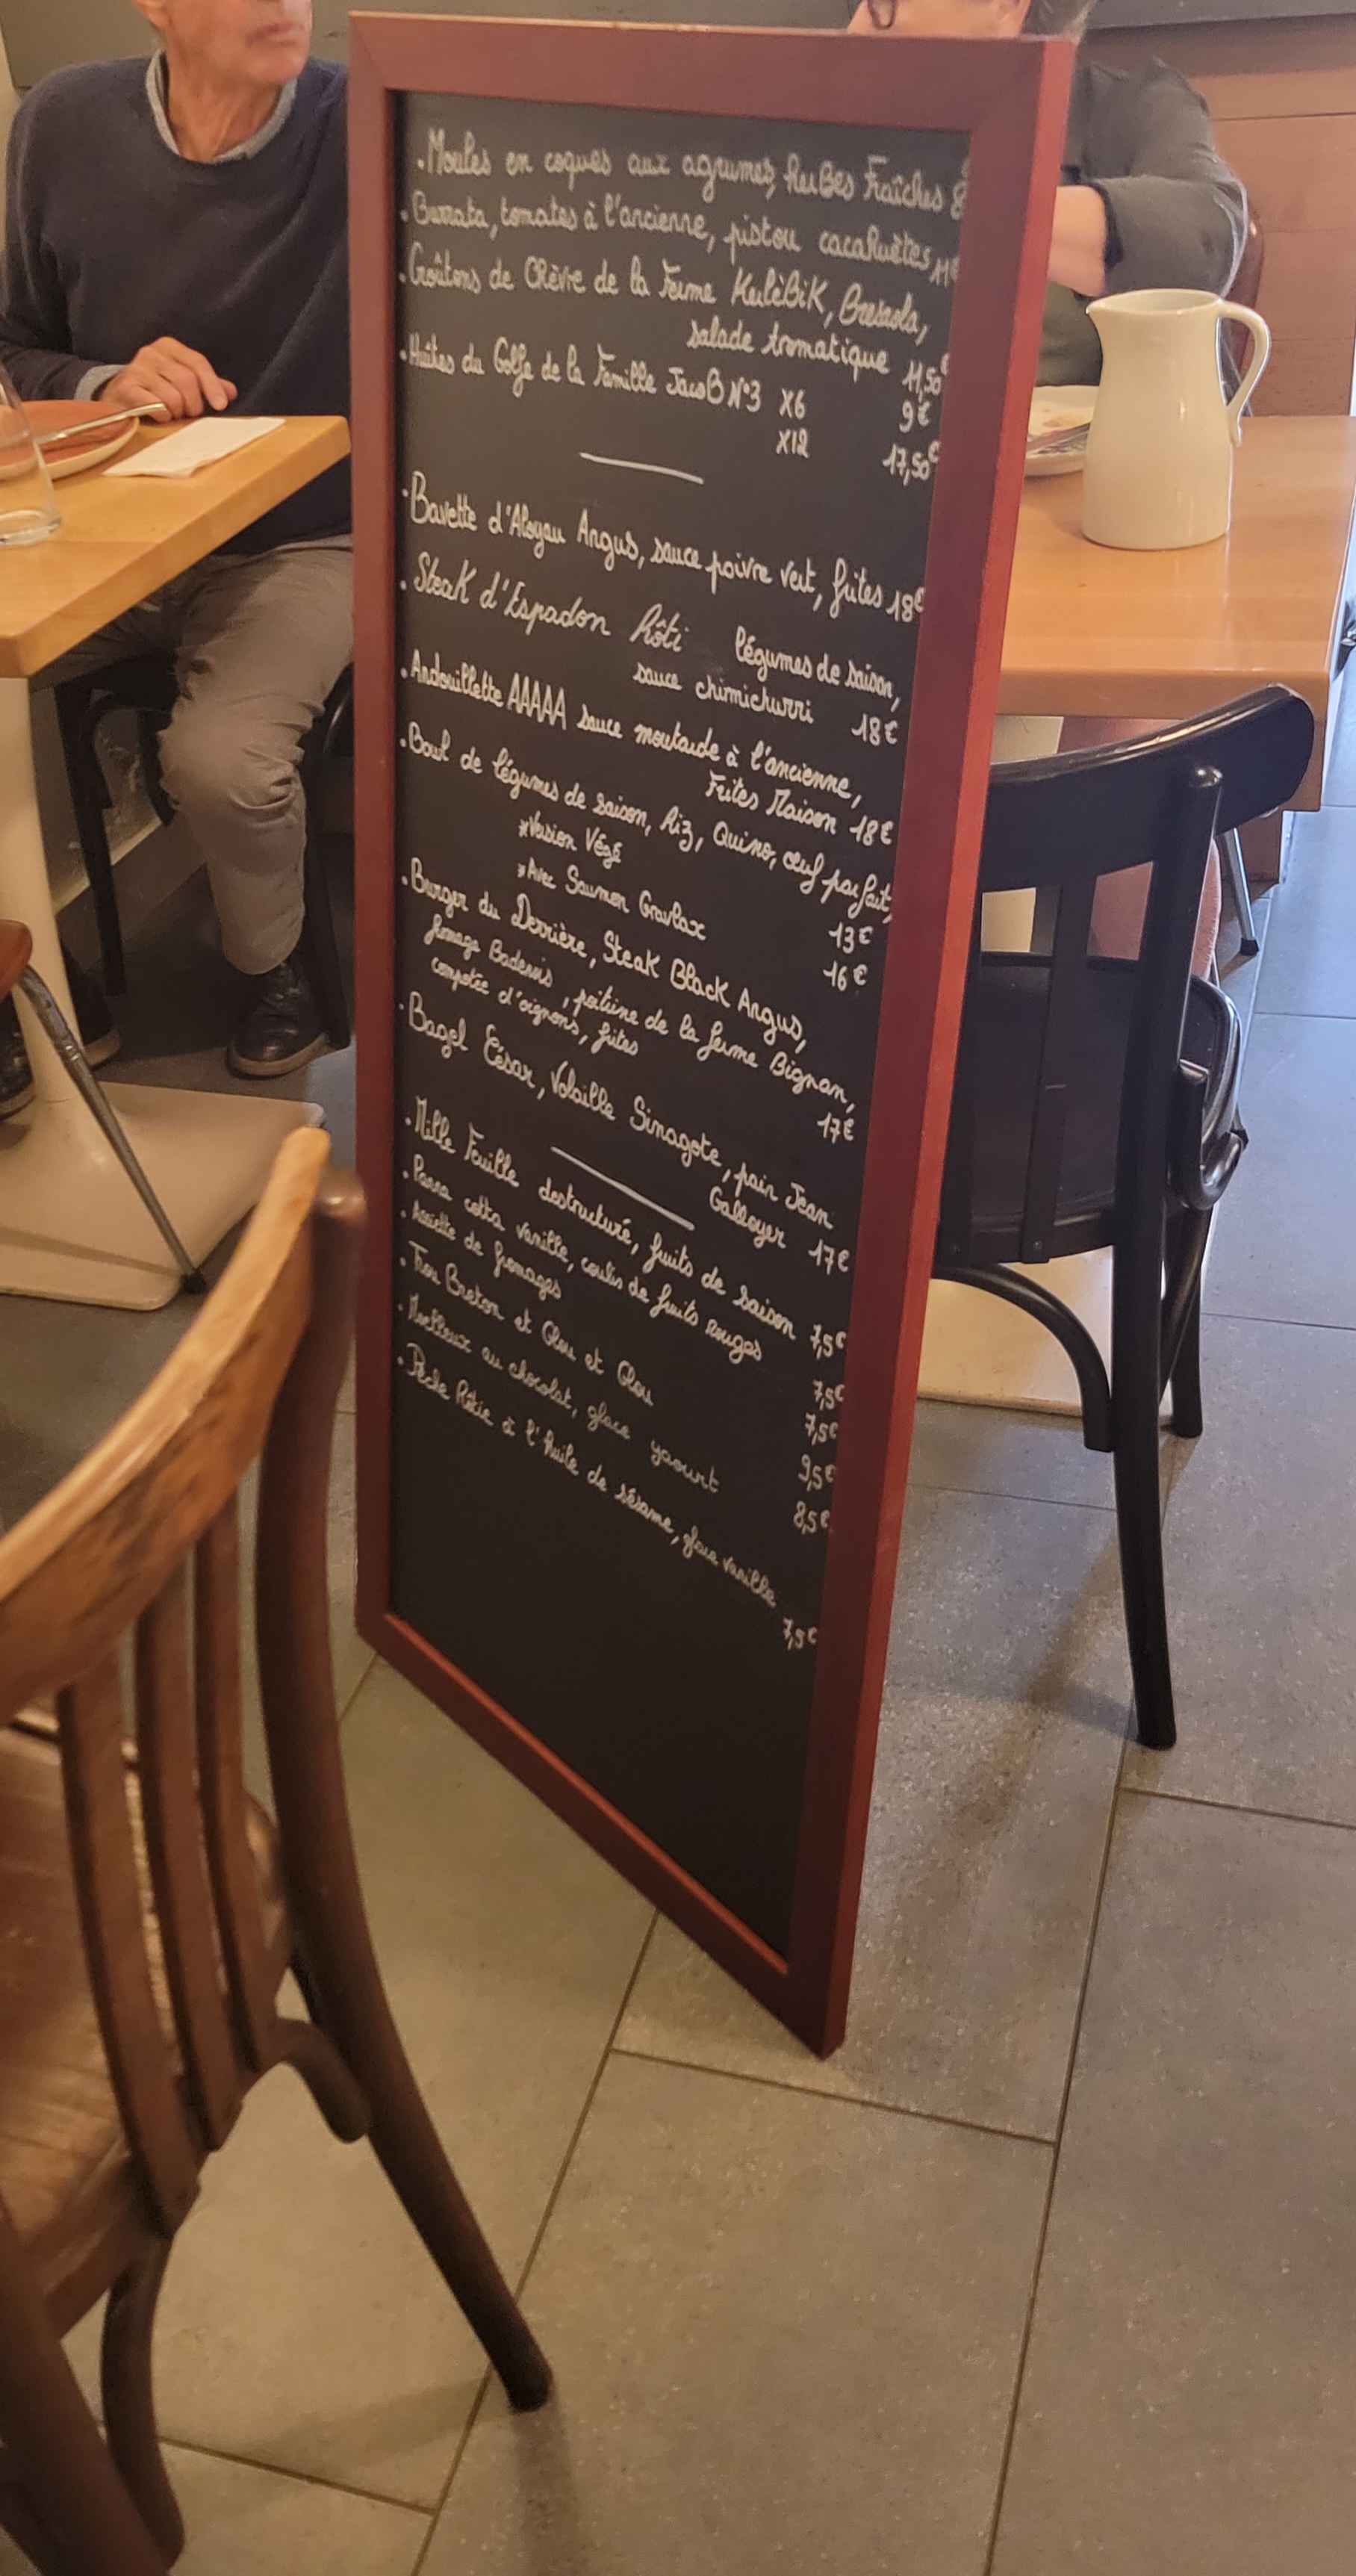 . Moules en coques aux agrumes, herbes Fraîches 8
. Burrata, tomates à l'ancienne, pistou cacahuètes 11€
. Croûtons de Chèvre de la Ferme KerlèBiK, Bresaola,
salade aromatique 11,50€
. Huîtres du Golfe de la Famille JacoB N°3 X6 9€
X12 17,50€
. Bavette d'Aloyau Angus, sauce poivre vert, frites 18€
. Steak d'Espadon Rôti légumes de saison,
sauce chimichurri 18€
. Andouillette AAAAA sauce moutarde à l'ancienne,
Frites Maison 18€
. Bowl de légumes de saison, Riz, Quinoa, œuf parfait,
*Version Végé 13€
*Avec Saumon Gravlax 16€
. Burger du Derrière, Steak Black Angus,
fromage, poitrine de la ferme Bignan,
compotée d'oignons, frites 17€
. Bagel César, Volaille Sinagote, pain Jean
Galloyer 17€
. Mille Feuille destructuré, fruits de saison 7,5€
. Panna cotta vanille, coulis de fruits rouges 7,5€
. Assiette de fromages 7,5€
. Trou Breton et Glou et Glou 9,5€
. Moelleux au chocolat, glace yaourt 8,5€
. Pêche Rôtie à l'huile de sésame, glace vanille 7,5€